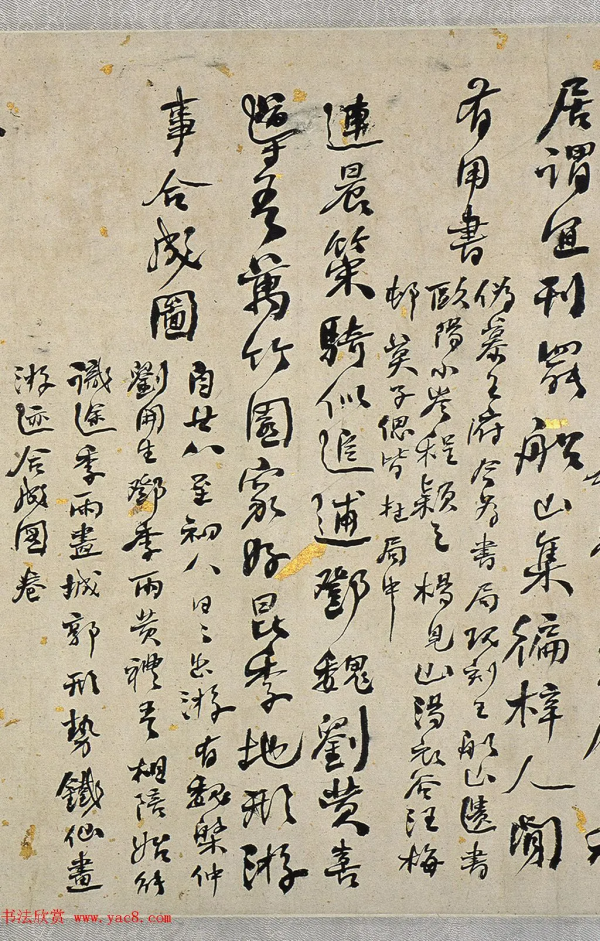 居謂宜刊罷船山集徧梓人間
有用書
偽慕王府今為書局現刻王船山遺書
歐陽小岑程穎芝楊見山湯衣谷汪梅
邨莫子偲皆在局中
連晨策騎似追逋鄧魏劉黄喜
導吾萬竹園家好昆季地形游
事合成圖
自廿八至初八日日出游有魏槃仲
劉開生鄧季雨黄禮吾相陪始終
識途季雨畫城郭形勢鐵仙畫
游迹合成图卷
书法欣赏 www.yac8.com